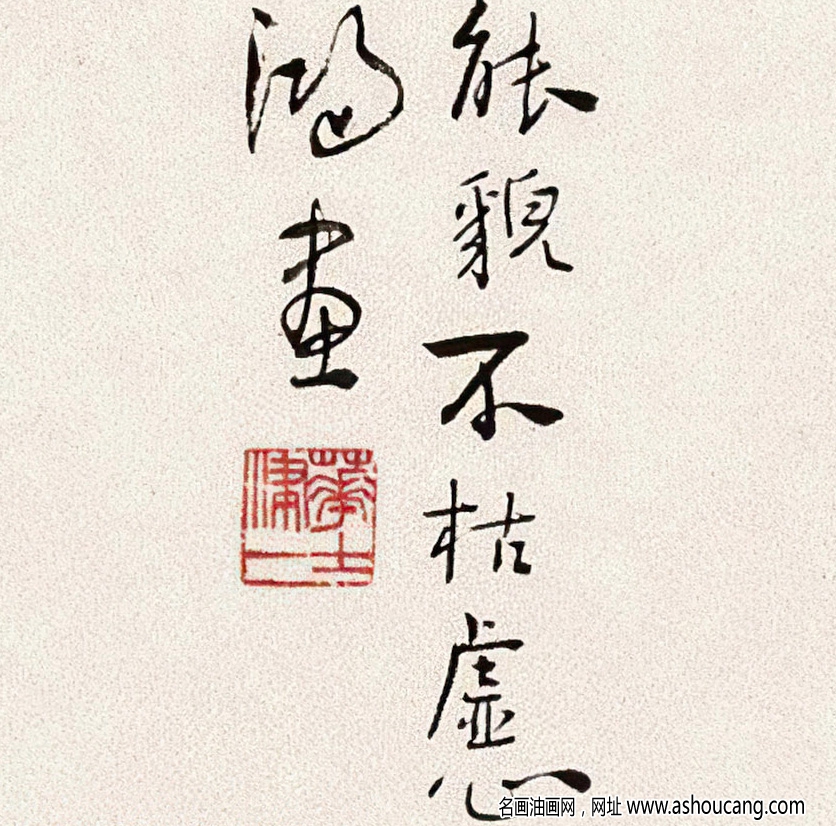 能貌不枯虚心
鸿画
名画油画网，网址 www.ashoucang.com